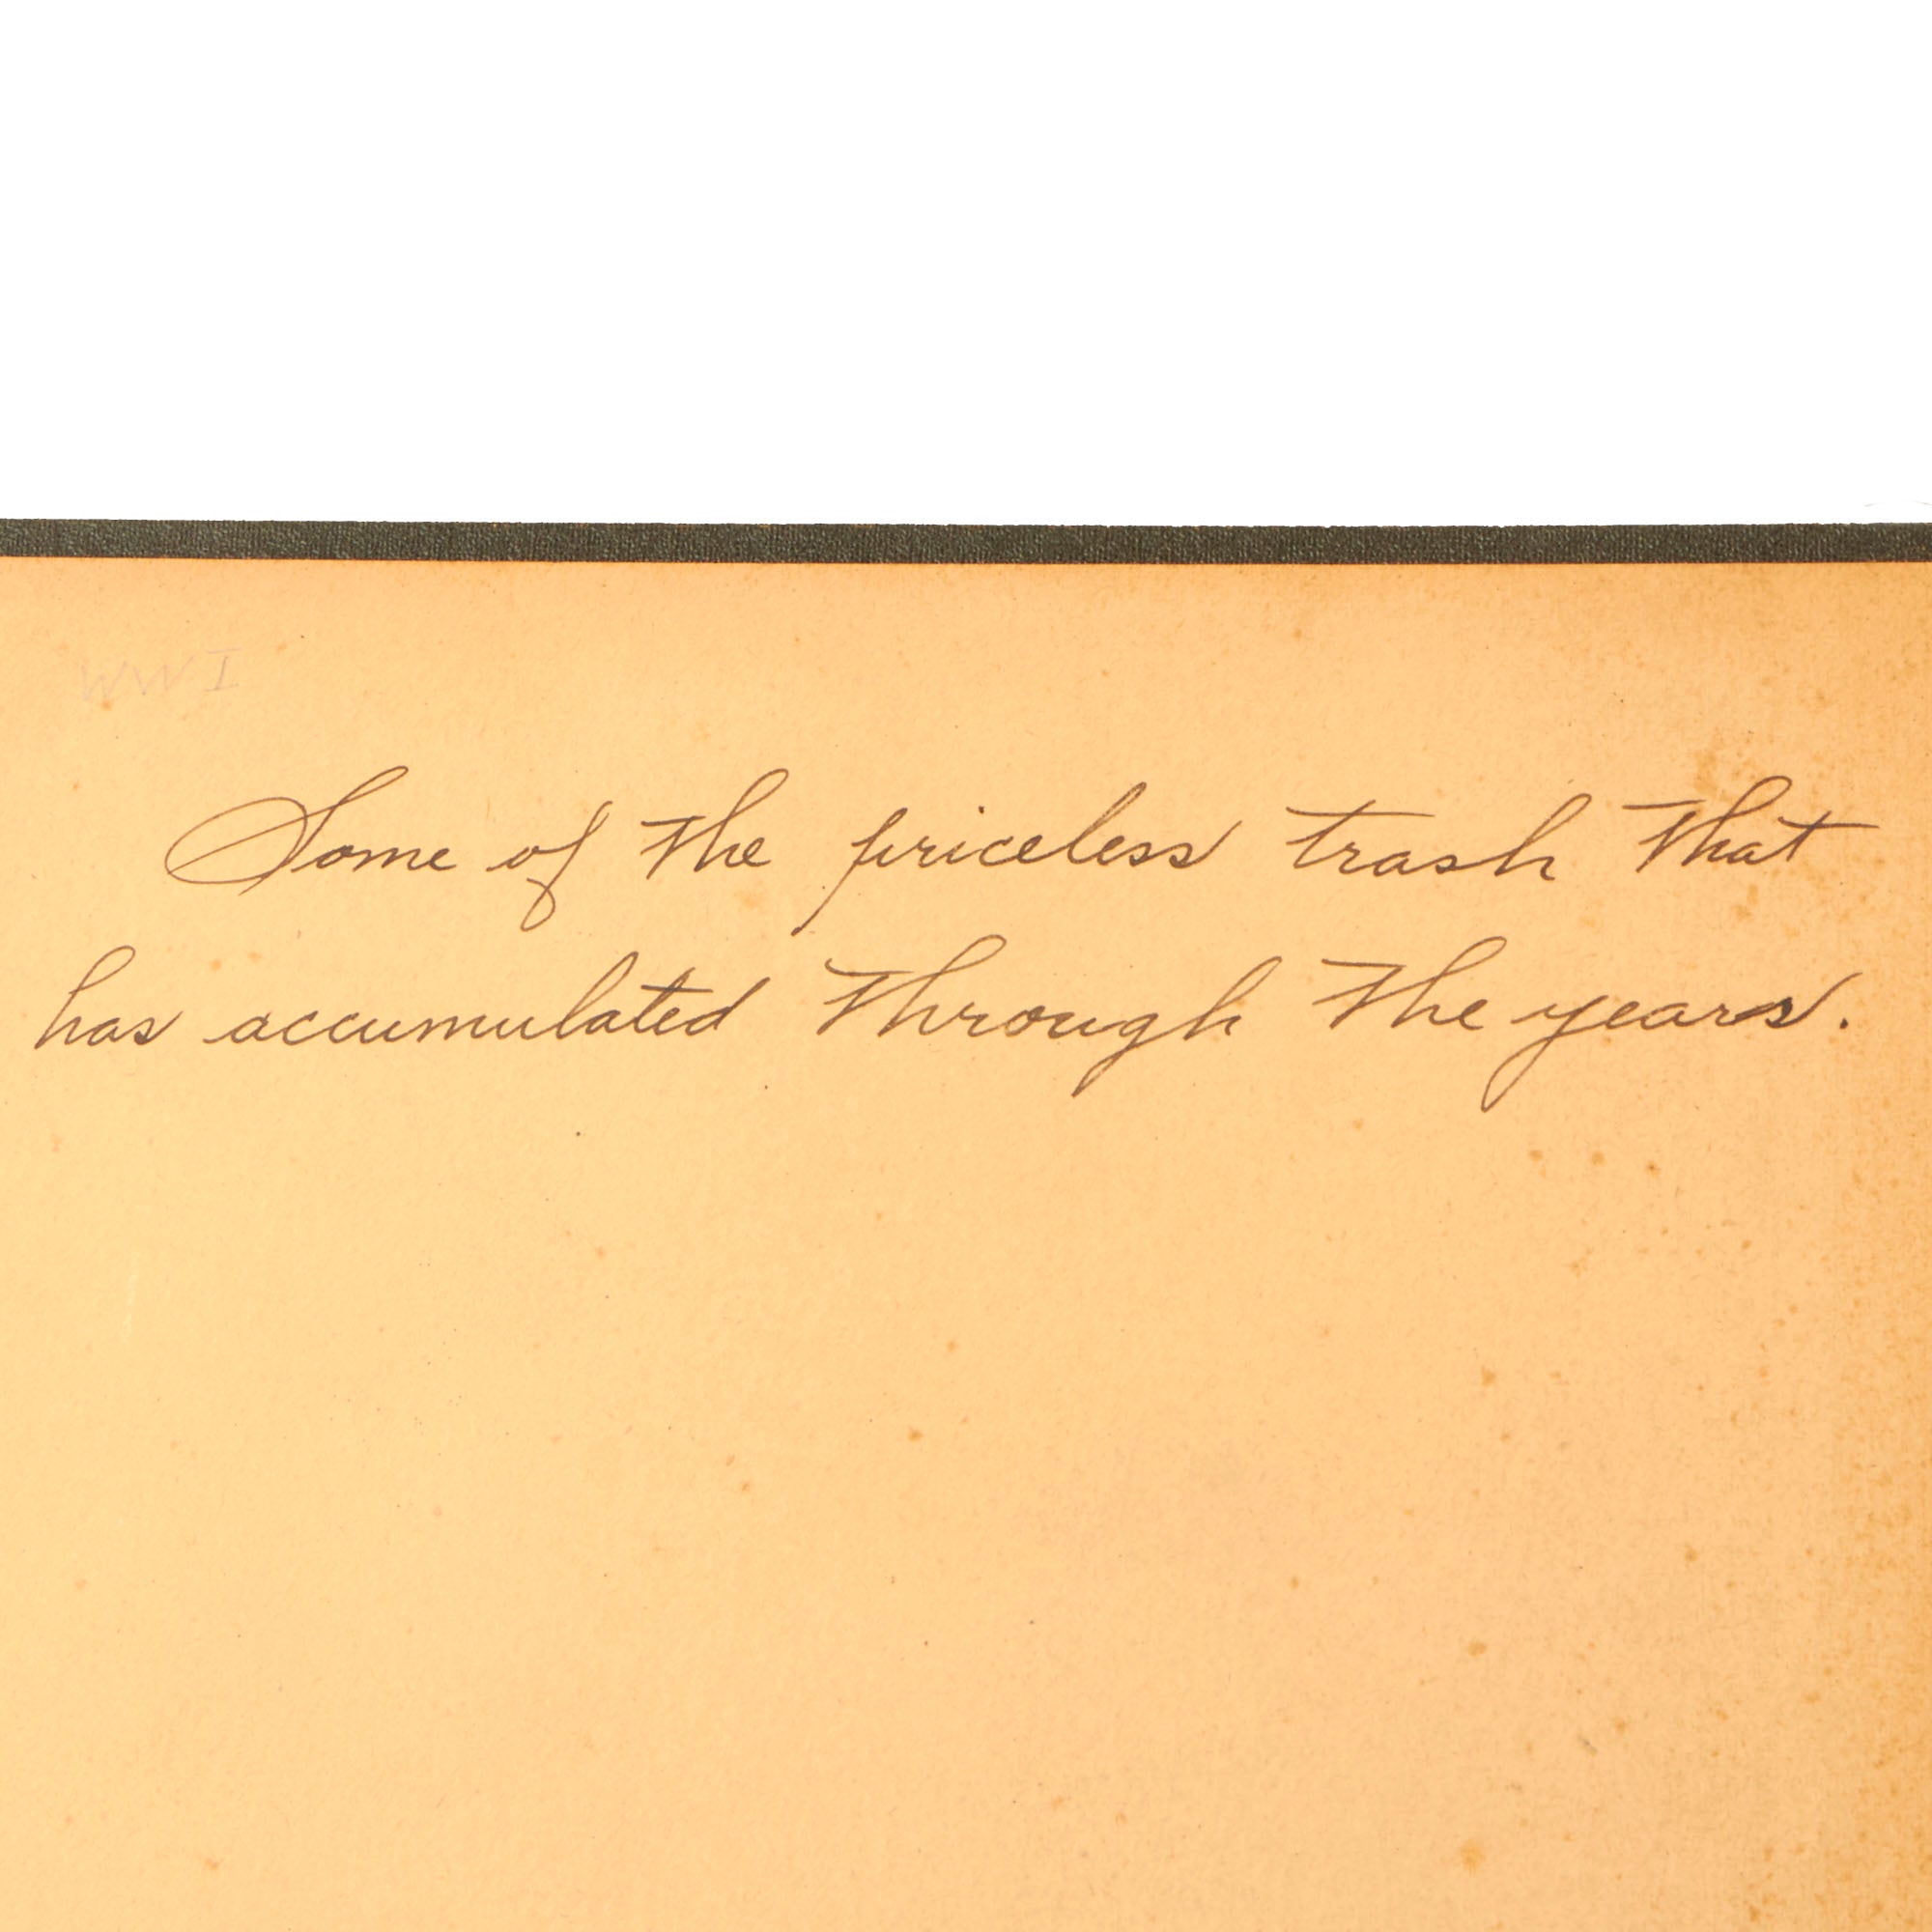 WWI
Some of the priceless trash that
has accumulated through the years.